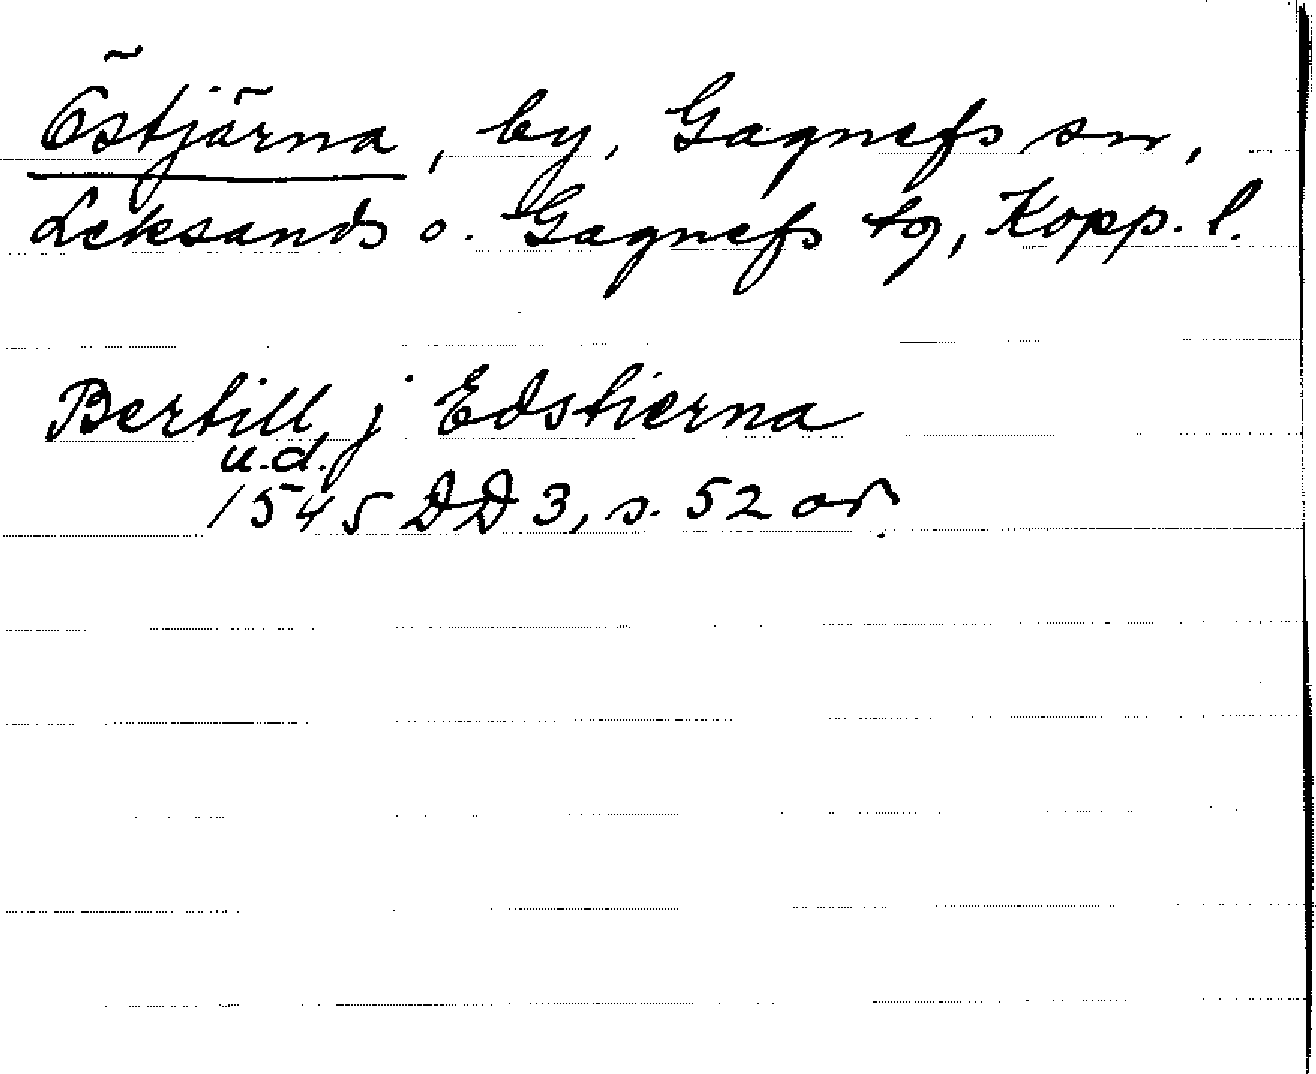 Östjärna, by, Gagnefs sn,
Leksands o. Gagnefs tg, Kopp. l.
Bertill j Edstierna
u.d.
1545 DD 3, s. 52 or